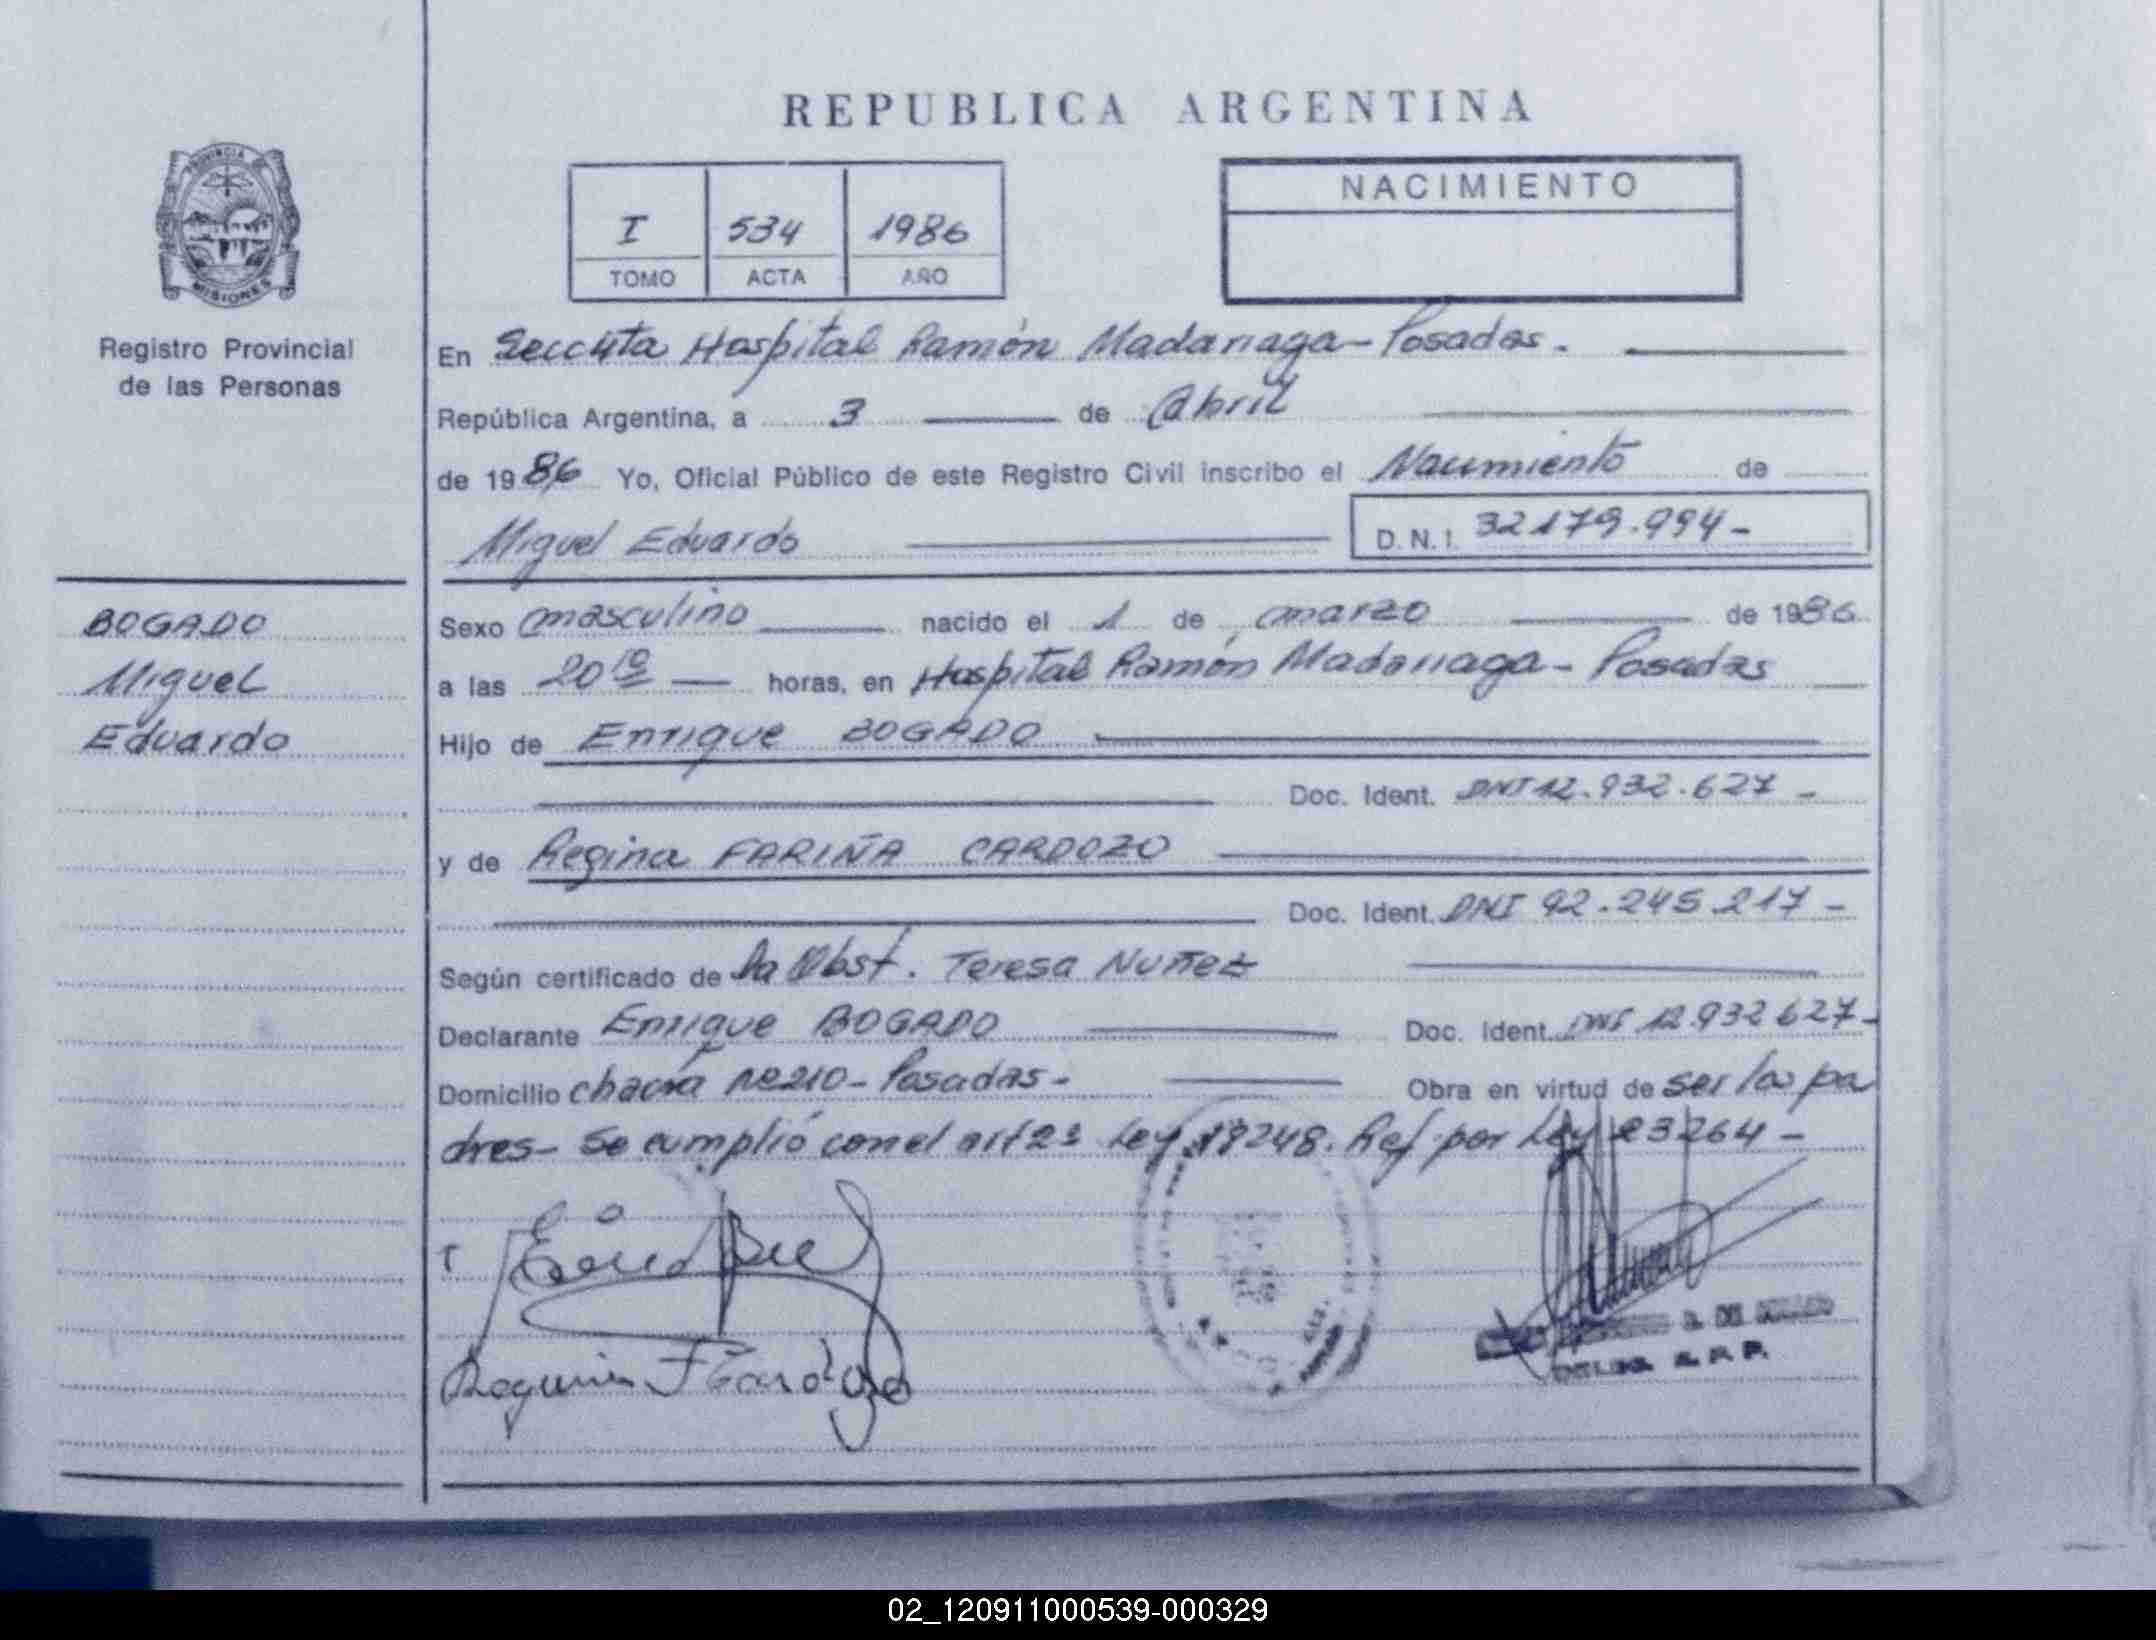 REPUBLICA ARGENTINA
PROVINCIA DE
MISIONES
Registro Provincial
de las Personas
I 534 1986
TOMO ACTA AÑO
NACIMIENTO
En Secc 4ta Hospital Ramón Madariaga - Posadas. -
República Argentina, a 3 de Abril
de 1986 Yo, Oficial Público de este Registro Civil inscribo el Nacimiento de
Miguel Eduardo D.N.I. 32179.994-
BOGADO
Miguel
Eduardo
Sexo masculino nacido el 1 de marzo de 1986
a las 20 10 horas, en Hospital Ramón Madariaga - Posadas
Hijo de Enrique BOGADO
Doc. Ident. DNI 12.932.627 -
y de Regina FARIÑA CARDOZO
Doc. Ident. DNI 92.245.217 -
Según certificado de la Obst. Teresa Nuñez
Declarante Enrique BOGADO Doc. Ident. DNI 12.932627-
Domicilio chacra Nº 210 - Posadas - Obra en virtud de ser los pa
dres - Se cumplió con el art 2º Ley 18248. Ref. por Ley 23264 -
R. P. P.
02_120911000539-000329